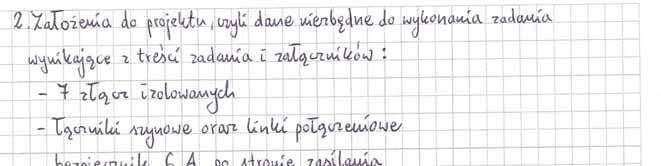 2. Założenia do projektu, czyli dane niezbędne do wykonania zadania
wynikające z treści zadania i załączników:
- 7 złącz izolowanych
- Łączniki szynowe oraz linki połączeniowe
bezpiecznik 6 A po stronie zasilania